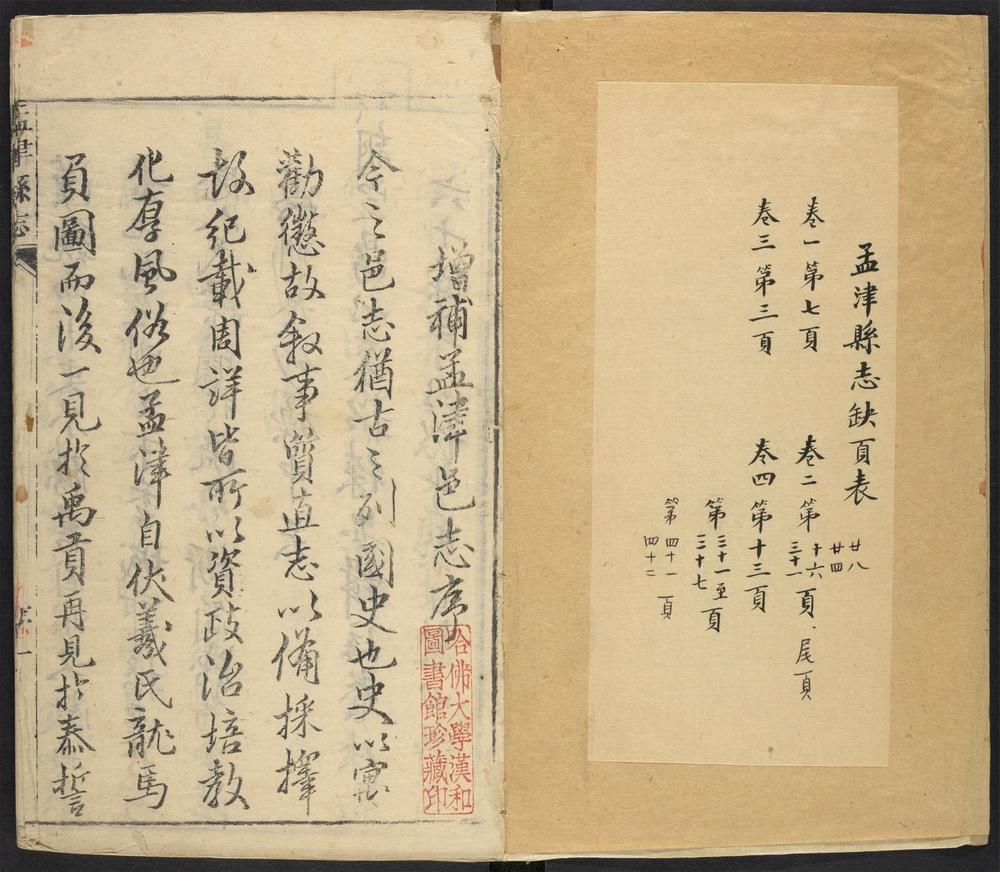 孟津縣志缺頁表
卷一第七頁
卷二第十六、廿四、廿八、三十一頁、尾頁
卷三第三頁
卷四第十三頁
第三十一至三十七頁
第四十一四十二頁
增補孟津邑志序
今之邑志猶古之列國史也史以寓
勸懲故叙事質直志以備採擇
故紀載周詳皆所以資政治培教
化厚風俗也孟津自伏羲氏龍馬
負圖而後一見於禹貢再見於泰誓
哈佛大學漢和
圖書館珍藏印
孟津縣志
序
一